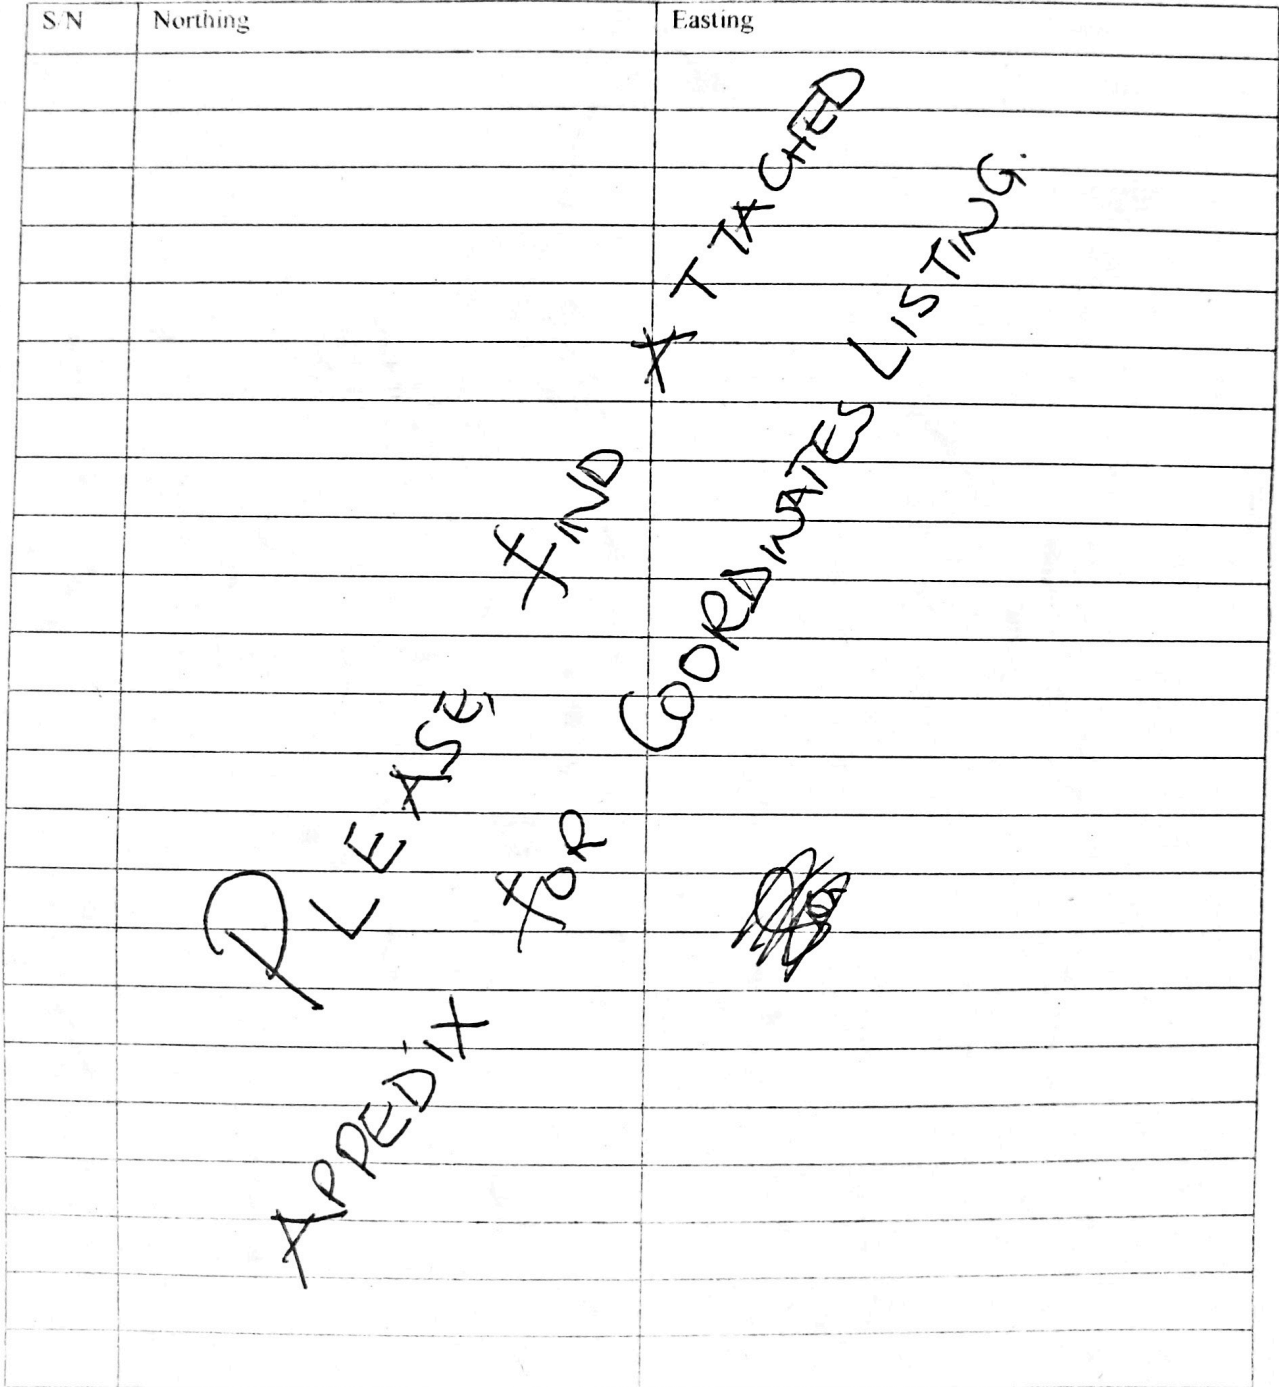 S/N Northing Easting
PLEASE, FIND ATTACHED
APPEDIX FOR COORDINATES LISTING.